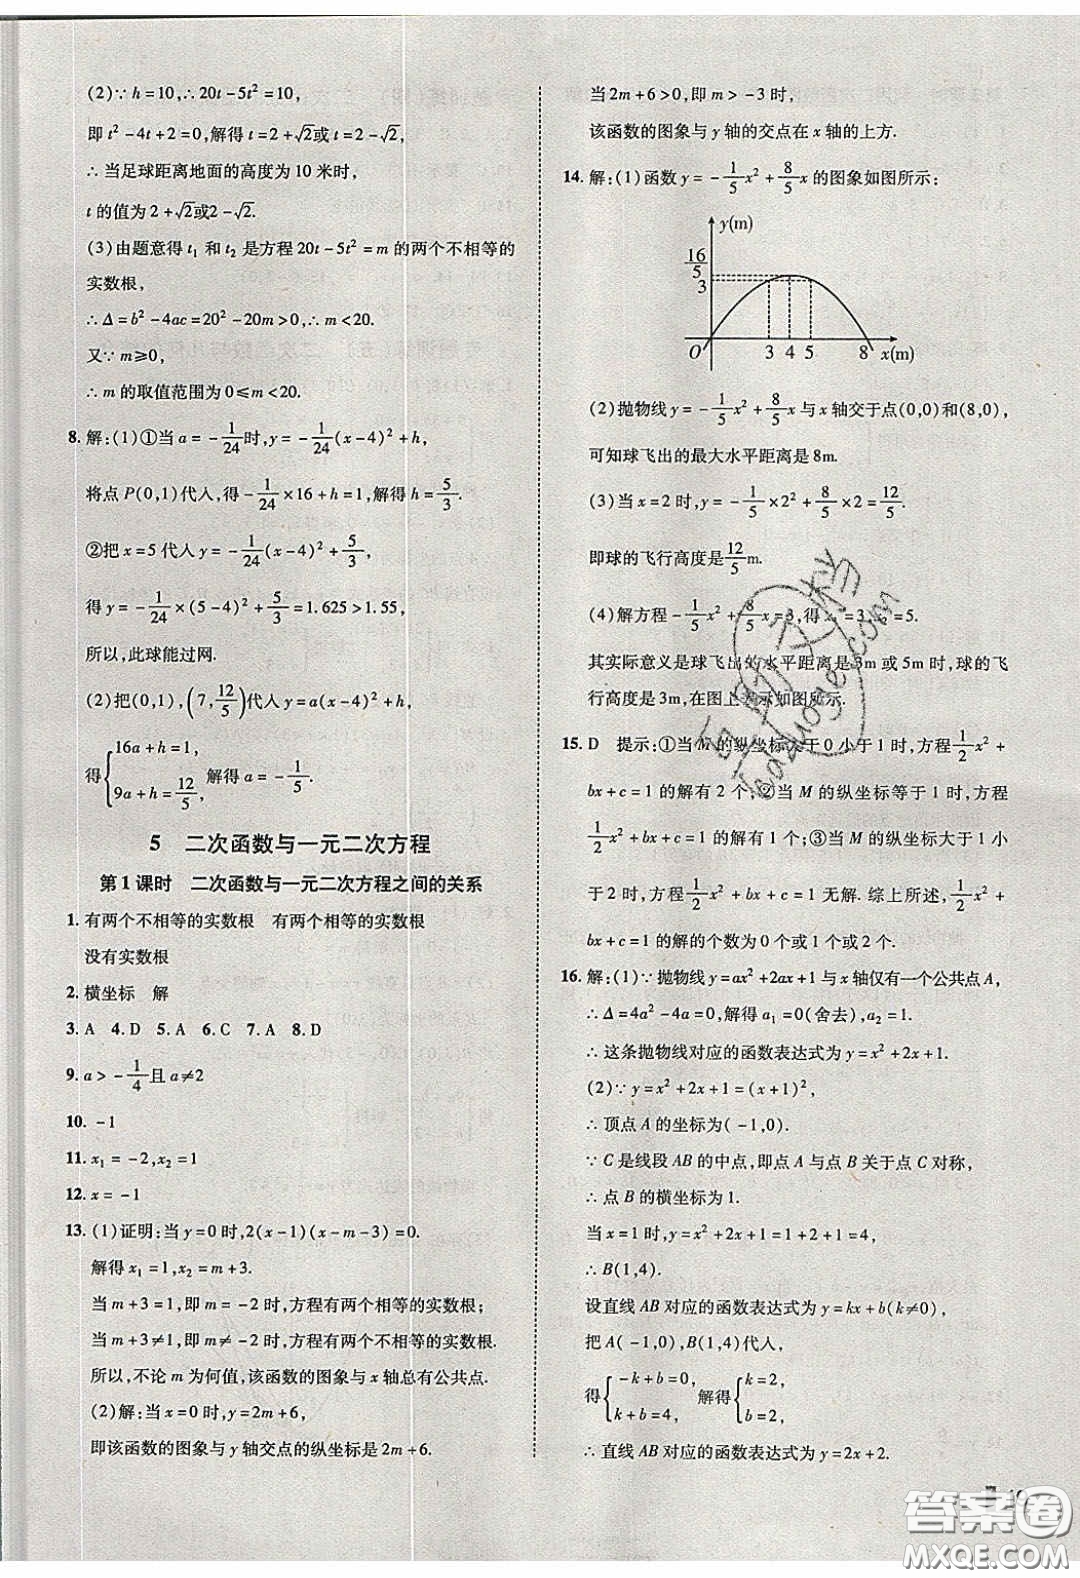 (2)∵h=10,∴20t-5t²=10,
即t²-4t+2=0,解得t=2+√2或t=2-√2.
∴当足球距离地面的高度为10米时,
t的值为2+√2或2-√2.
(3)由题意得t₁和t₂是方程20t-5t²=m的两个不相等的
实数根,
∴Δ=b²-4ac=20²-20m>0,∴m<20.
又∵m≥0,
∴m的取值范围为0≤m<20.
8.解:(1)①当a=-1/24时,y=-1/24(x-4)²+h,
将点P(0,1)代人,得-1/24×16+h=1,解得h=5/3.
②把x=5代人y=-1/24(x-4)²+5/3,
得y=-1/24×(5-4)²+5/3=1.625>1.55,
所以,此球能过网.
(2)把(0,1),(7,12/5)代人y=a(x-4)²+h,
得{16a+h=1, 9a+h=12/5, 解得a=-1/5.
5 二次函数与一元二次方程
第1课时 二次函数与一元二次方程之间的关系
1.有两个不相等的实数根 有两个相等的实数根
没有实数根
2.横坐标 解
3.A 4.D 5.A 6.C 7.A 8.D
9.a>-1/4且a≠2
10.-1
11.x₁=-2,x₂=1
12.x=-1
13.(1)证明:当y=0时,2(x-1)(x-m-3)=0.
解得x₁=1,x₂=m+3.
当m+3=1,即m=-2时,方程有两个相等的实数根;
当m+3≠1,即m≠-2时,方程有两个不相等的实数根.
所以,不论m为何值,该函数的图象与x轴总有公共点.
(2)解:当x=0时,y=2m+6,
即该函数的图象与y轴交点的纵坐标是2m+6.
当2m+6>0,即m>-3时,
该函数的图象与y轴的交点在x轴的上方.
14.解:(1)函数y=-1/5x²+8/5x的图象如图所示:
y(m)
16/5
3
O 3 4 5 8 x(m)
(2)抛物线y=-1/5x²+8/5x与x轴交于点(0,0)和(8,0),
可知球飞出的最大水平距离是8m.
(3)当x=2时,y=-1/5×2²+8/5×2=12/5.
即球的飞行高度是12/5m.
(4)解方程-1/5x²+8/5x=3,得x₁=3,x₂=5.
其实际意义是球飞出的水平距离是3m或5m时,球的飞
行高度是3m,在图上表示如图所示.
15.D 提示:①当M的纵坐标大于0小于1时,方程1/2x²+
bx+c=1的解有2个;②当M的纵坐标等于1时,方程
1/2x²+bx+c=1的解有1个;③当M的纵坐标大于1小
于2时,1/2x²+bx+c=1无解.综上所述,1/2x²+
bx+c=1的解的个数为0个或1个或2个.
16.解:(1)∵抛物线y=ax²+2ax+1与x轴仅有一个公共点A,
∴Δ=4a²-4a=0,解得a₁=0(舍去),a₂=1.
∴这条抛物线对应的函数表达式为y=x²+2x+1.
(2)∵y=x²+2x+1=(x+1)²,
∴顶点A的坐标为(-1,0).
∵C是线段AB的中点,即点A与点B关于点C对称,
∴点B的横坐标为1.
当x=1时,y=x²+2x+1=1+2+1=4,
∴B(1,4).
设直线AB对应的函数表达式为y=kx+b(k≠0),
把A(-1,0),B(1,4)代人,
得{-k+b=0, k+b=4, 解得{k=2, b=2,
∴直线AB对应的函数表达式为y=2x+2.
答案圈
MXQE.COM